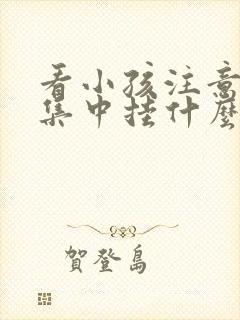 看小孩注意
集中挂什麼
賀登島